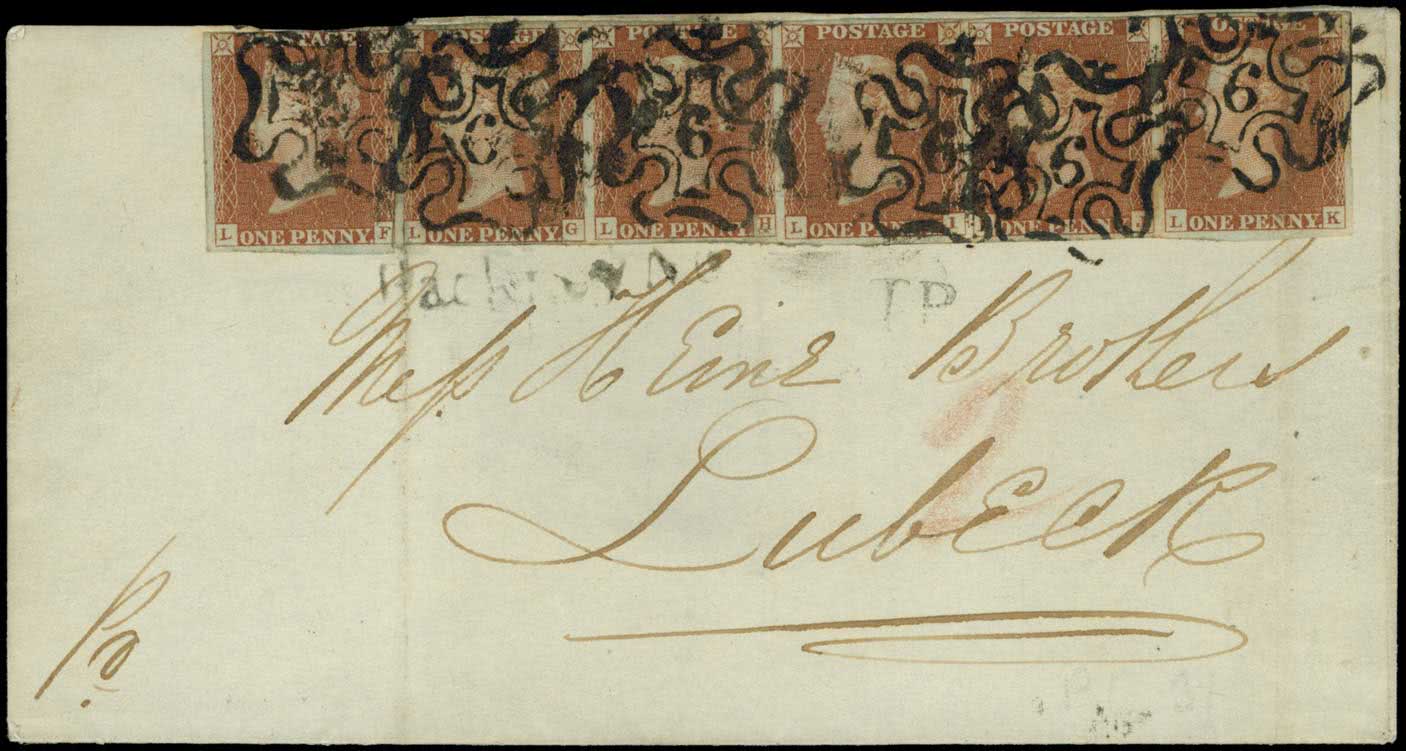 POSTAGE POSTAGE POSTAGE POSTAGE POSTAGE POSTAGE
6 6 6 6 6
L F L G L H L I L J L K
ONE PENNY. ONE PENNY. ONE PENNY. ONE PENNY. ONE PENNY. ONE PENNY.
TP
Mess Heinz Brothers
2
Lubeck
Pd